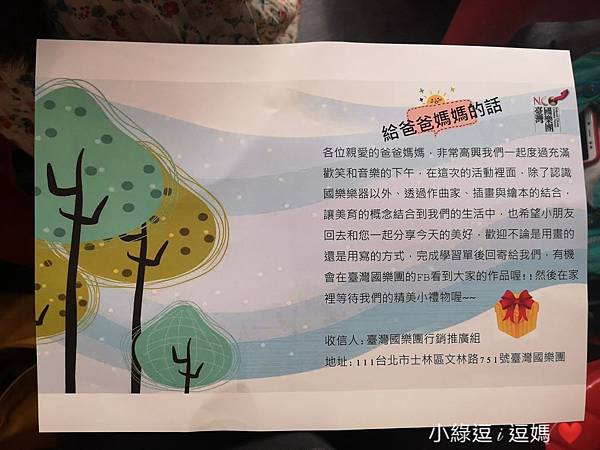 給爸爸媽媽的話
NCO
臺灣國樂團
各位親愛的爸爸媽媽，非常高興我們一起度過充滿
歡笑和音樂的下午，在這次的活動裡面，除了認識
國樂樂器以外、透過作曲家、插畫與繪本的結合，
讓美育的概念結合到我們的生活中，也希望小朋友
回去和您一起分享今天的美好，歡迎不論是用畫的
還是用寫的方式，完成學習單後回寄給我們，有機
會在臺灣國樂團的FB看到大家的作品喔!!然後在家
裡等待我們的精美小禮物喔~~
收信人:臺灣國樂團行銷推廣組
地址:111台北市士林區文林路751號臺灣國樂團
小綠逗i逗媽